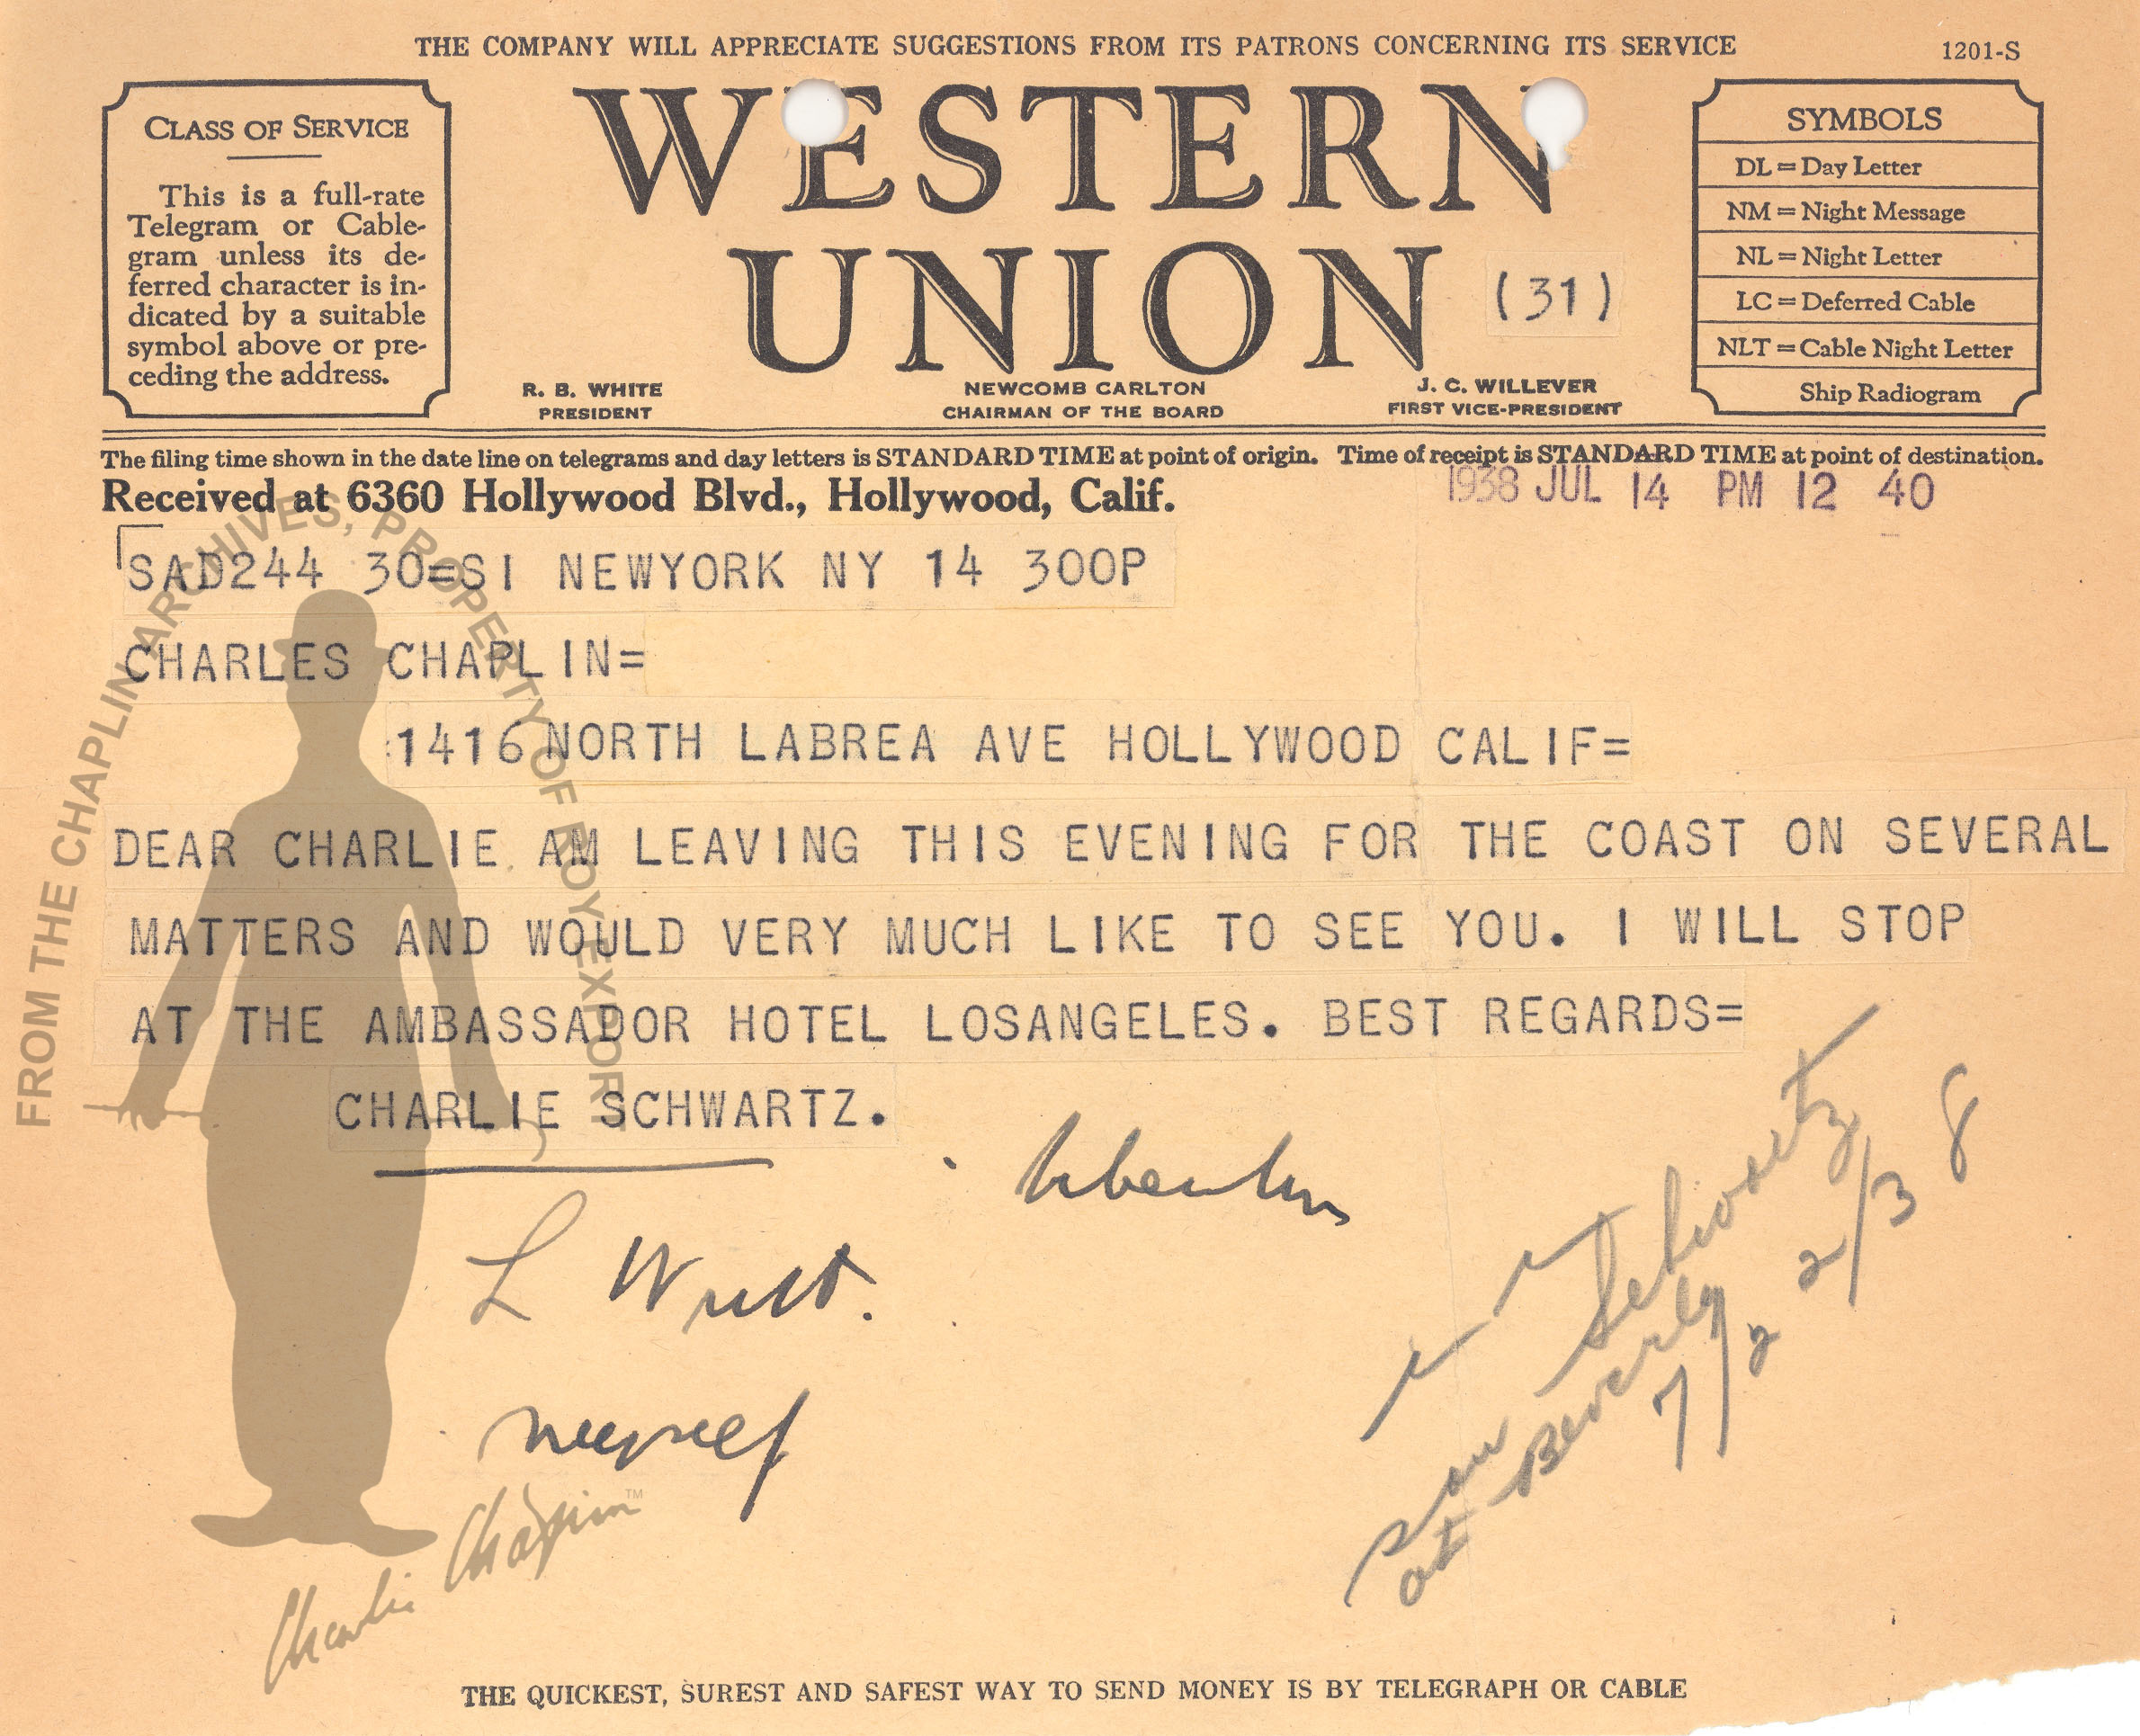 THE COMPANY WILL APPRECIATE SUGGESTIONS FROM ITS PATRONS CONCERNING ITS SERVICE
1201-S
CLASS OF SERVICE
This is a full-rate
Telegram or Cable-
gram unless its de-
ferred character is in-
dicated by a suitable
symbol above or pre-
ceding the address.
WESTERN
UNION
(31)
R. B. WHITE
PRESIDENT
NEWCOMB CARLTON
CHAIRMAN OF THE BOARD
J. C. WILLEVER
FIRST VICE-PRESIDENT
SYMBOLS
DL = Day Letter
NM = Night Message
NL = Night Letter
LC = Deferred Cable
NLT = Cable Night Letter
Ship Radiogram
The filing time shown in the date line on telegrams and day letters is STANDARD TIME at point of origin. Time of receipt is STANDARD TIME at point of destination.
Received at 6360 Hollywood Blvd., Hollywood, Calif.
1938 JUL 14 PM 12 40
SAD244 30=SI NEWYORK NY 14 300P
CHARLES CHAPLIN=
1416 NORTH LABREA AVE HOLLYWOOD CALIF=
DEAR CHARLIE AM LEAVING THIS EVENING FOR THE COAST ON SEVERAL
MATTERS AND WOULD VERY MUCH LIKE TO SEE YOU. I WILL STOP
AT THE AMBASSADOR HOTEL LOSANGELES. BEST REGARDS=
CHARLIE SCHWARTZ.
L
Schwartz
saw
at Beverly
7/22/38
FROM THE CHAPLIN ARCHIVES, PROPERTY OF ROY EXPORT
Charlie Chaplin™
THE QUICKEST, SUREST AND SAFEST WAY TO SEND MONEY IS BY TELEGRAPH OR CABLE